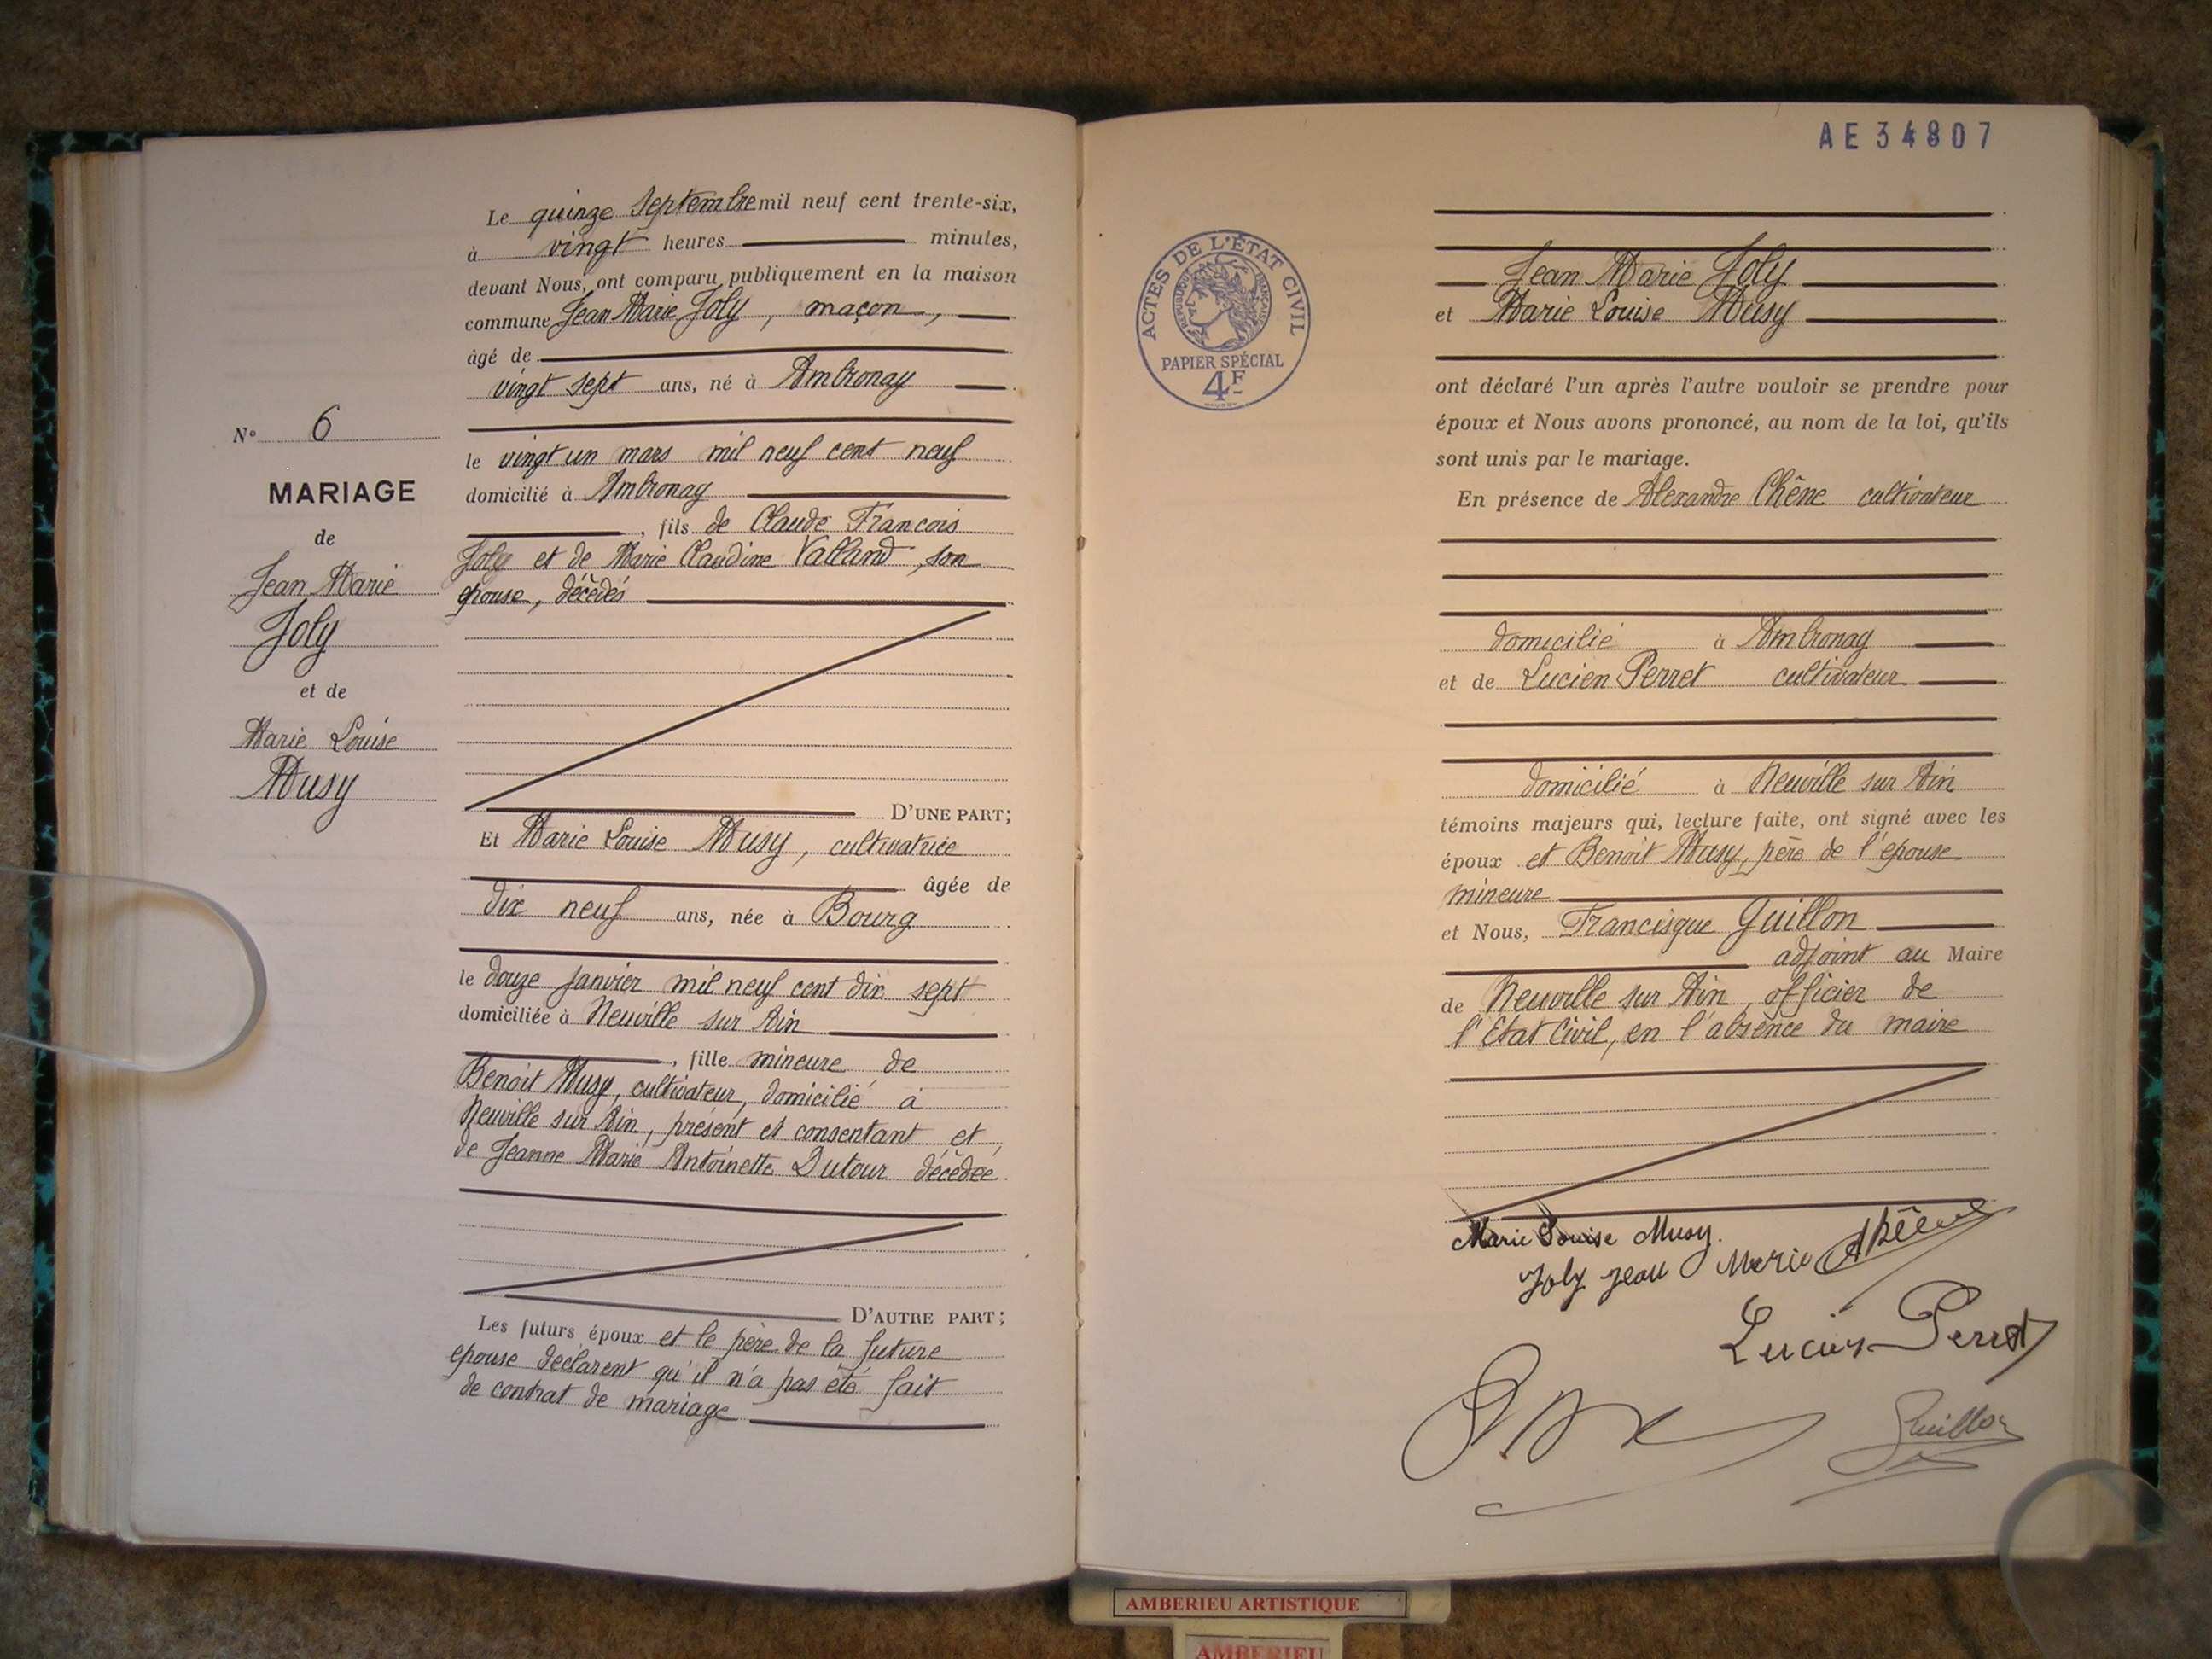 N° 6
MARIAGE
de
Jean Marie
Joly
et de
Marie Louise
Musy
Le quinze septembre mil neuf cent trente-six,
à vingt heures minutes,
devant Nous, ont comparu publiquement en la maison
commune Jean Marie Joly, maçon,
âgé de
vingt sept ans, né à Ambronay
le vingt un mars mil neuf cent neuf
domicilié à Ambronay
, fils de Claude Francois
Joly et de Marie Claudine Valland, son
epouse, décédés
D'UNE PART;
Et Marie Louise Musy, cultivatrice
âgée de
dix neuf ans, née à Bourg
le douze janvier mil neuf cent dix sept
domiciliée à Neuville sur Ain
, fille mineure de
Benoit Musy, cultivateur, domicilié à
Neuville sur Ain, présent et consentant et
de Jeanne Marie Antoinette Dutour décédée
D'AUTRE PART;
Les futurs époux et le père de la future
epouse déclarent qu'il n'a pas été fait
de contrat de mariage
AE34807
ACTES DE L'ÉTAT CIVIL
RÉPUBLIQUE FRANÇAISE
PAPIER SPÉCIAL
4F
Jean Marie Joly
et Marie Louise Musy
ont déclaré l'un après l'autre vouloir se prendre pour
époux et Nous avons prononcé, au nom de la loi, qu'ils
sont unis par le mariage.
En présence de Alexandre Chêne cultivateur
domicilié à Ambronay
et de Lucien Perret cultivateur
domicilié à Neuville sur Ain
témoins majeurs qui, lecture faite, ont signé avec les
époux et Benoit Musy, père de l'épouse
mineure
et Nous, Francisque Guillon
adjoint au Maire
de Neuville sur Ain, officier de
l'Etat Civil, en l'absence du maire
Marie Louise Musy.
Joly Jean Marie AChêne
Lucien Perret
Guillon
AMBERIEU ARTISTIQUE
AMBERIEU